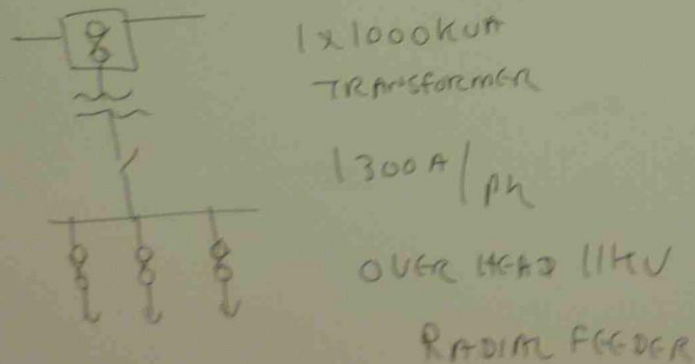 1x1000KVA
TRANSformER
1300A/ph
OVER HEAD 11KV
RADIAL FEEDER